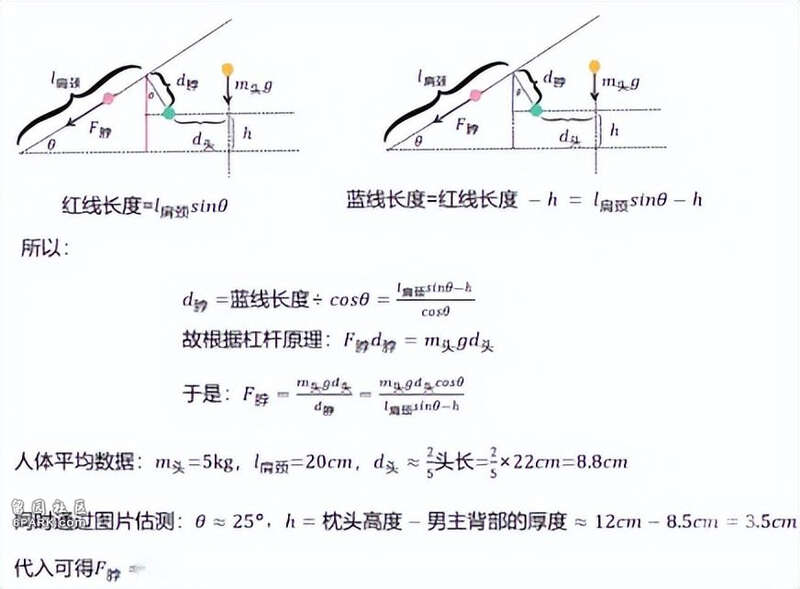 l肩颈 d脖 m头g l肩颈 d脖 m头g
θ θ
F脖 h F脖 h
θ d头 θ d头
红线长度=l肩颈sinθ 蓝线长度=红线长度 − h = l肩颈sinθ − h
所以:
d脖 =蓝线长度÷ cosθ = (l肩颈sinθ−h)/cosθ
故根据杠杆原理: F脖d脖 = m头gd头
于是: F脖 = m头gd头/d脖 = m头gd头cosθ/(l肩颈sinθ−h)
人体平均数据: m头=5kg, l肩颈=20cm, d头 ≈ 2/5头长=2/5×22cm=8.8cm
留园社区
6PARK.com
时通过图片估测: θ ≈ 25°, h = 枕头高度 − 男主背部的厚度 ≈ 12cm − 8.5cm = 3.5cm
代入可得F脖 =